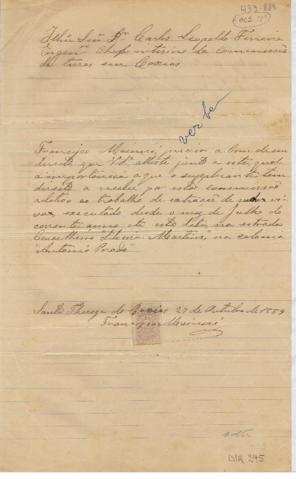 433-888
Illmo Snr Dr Carlos Leopoldo Ferreira
Engenro Chefe interino da Commissão
de terras em Caxias
verbo
Francisco precisa a bem de seu
direito que V.Sa atteste junto a este, qual
a importancia a que o supplicante tem
direito a receber por esta commissão
relativo ao trabalho de
executado desde o mez de Julho do
corrente anno, até esta data na estrada
Conselheiro na colonia
Antonio Prado
Santa Thereza de Caxias 27 de Outubro de 1889
Francisco
DIR 245